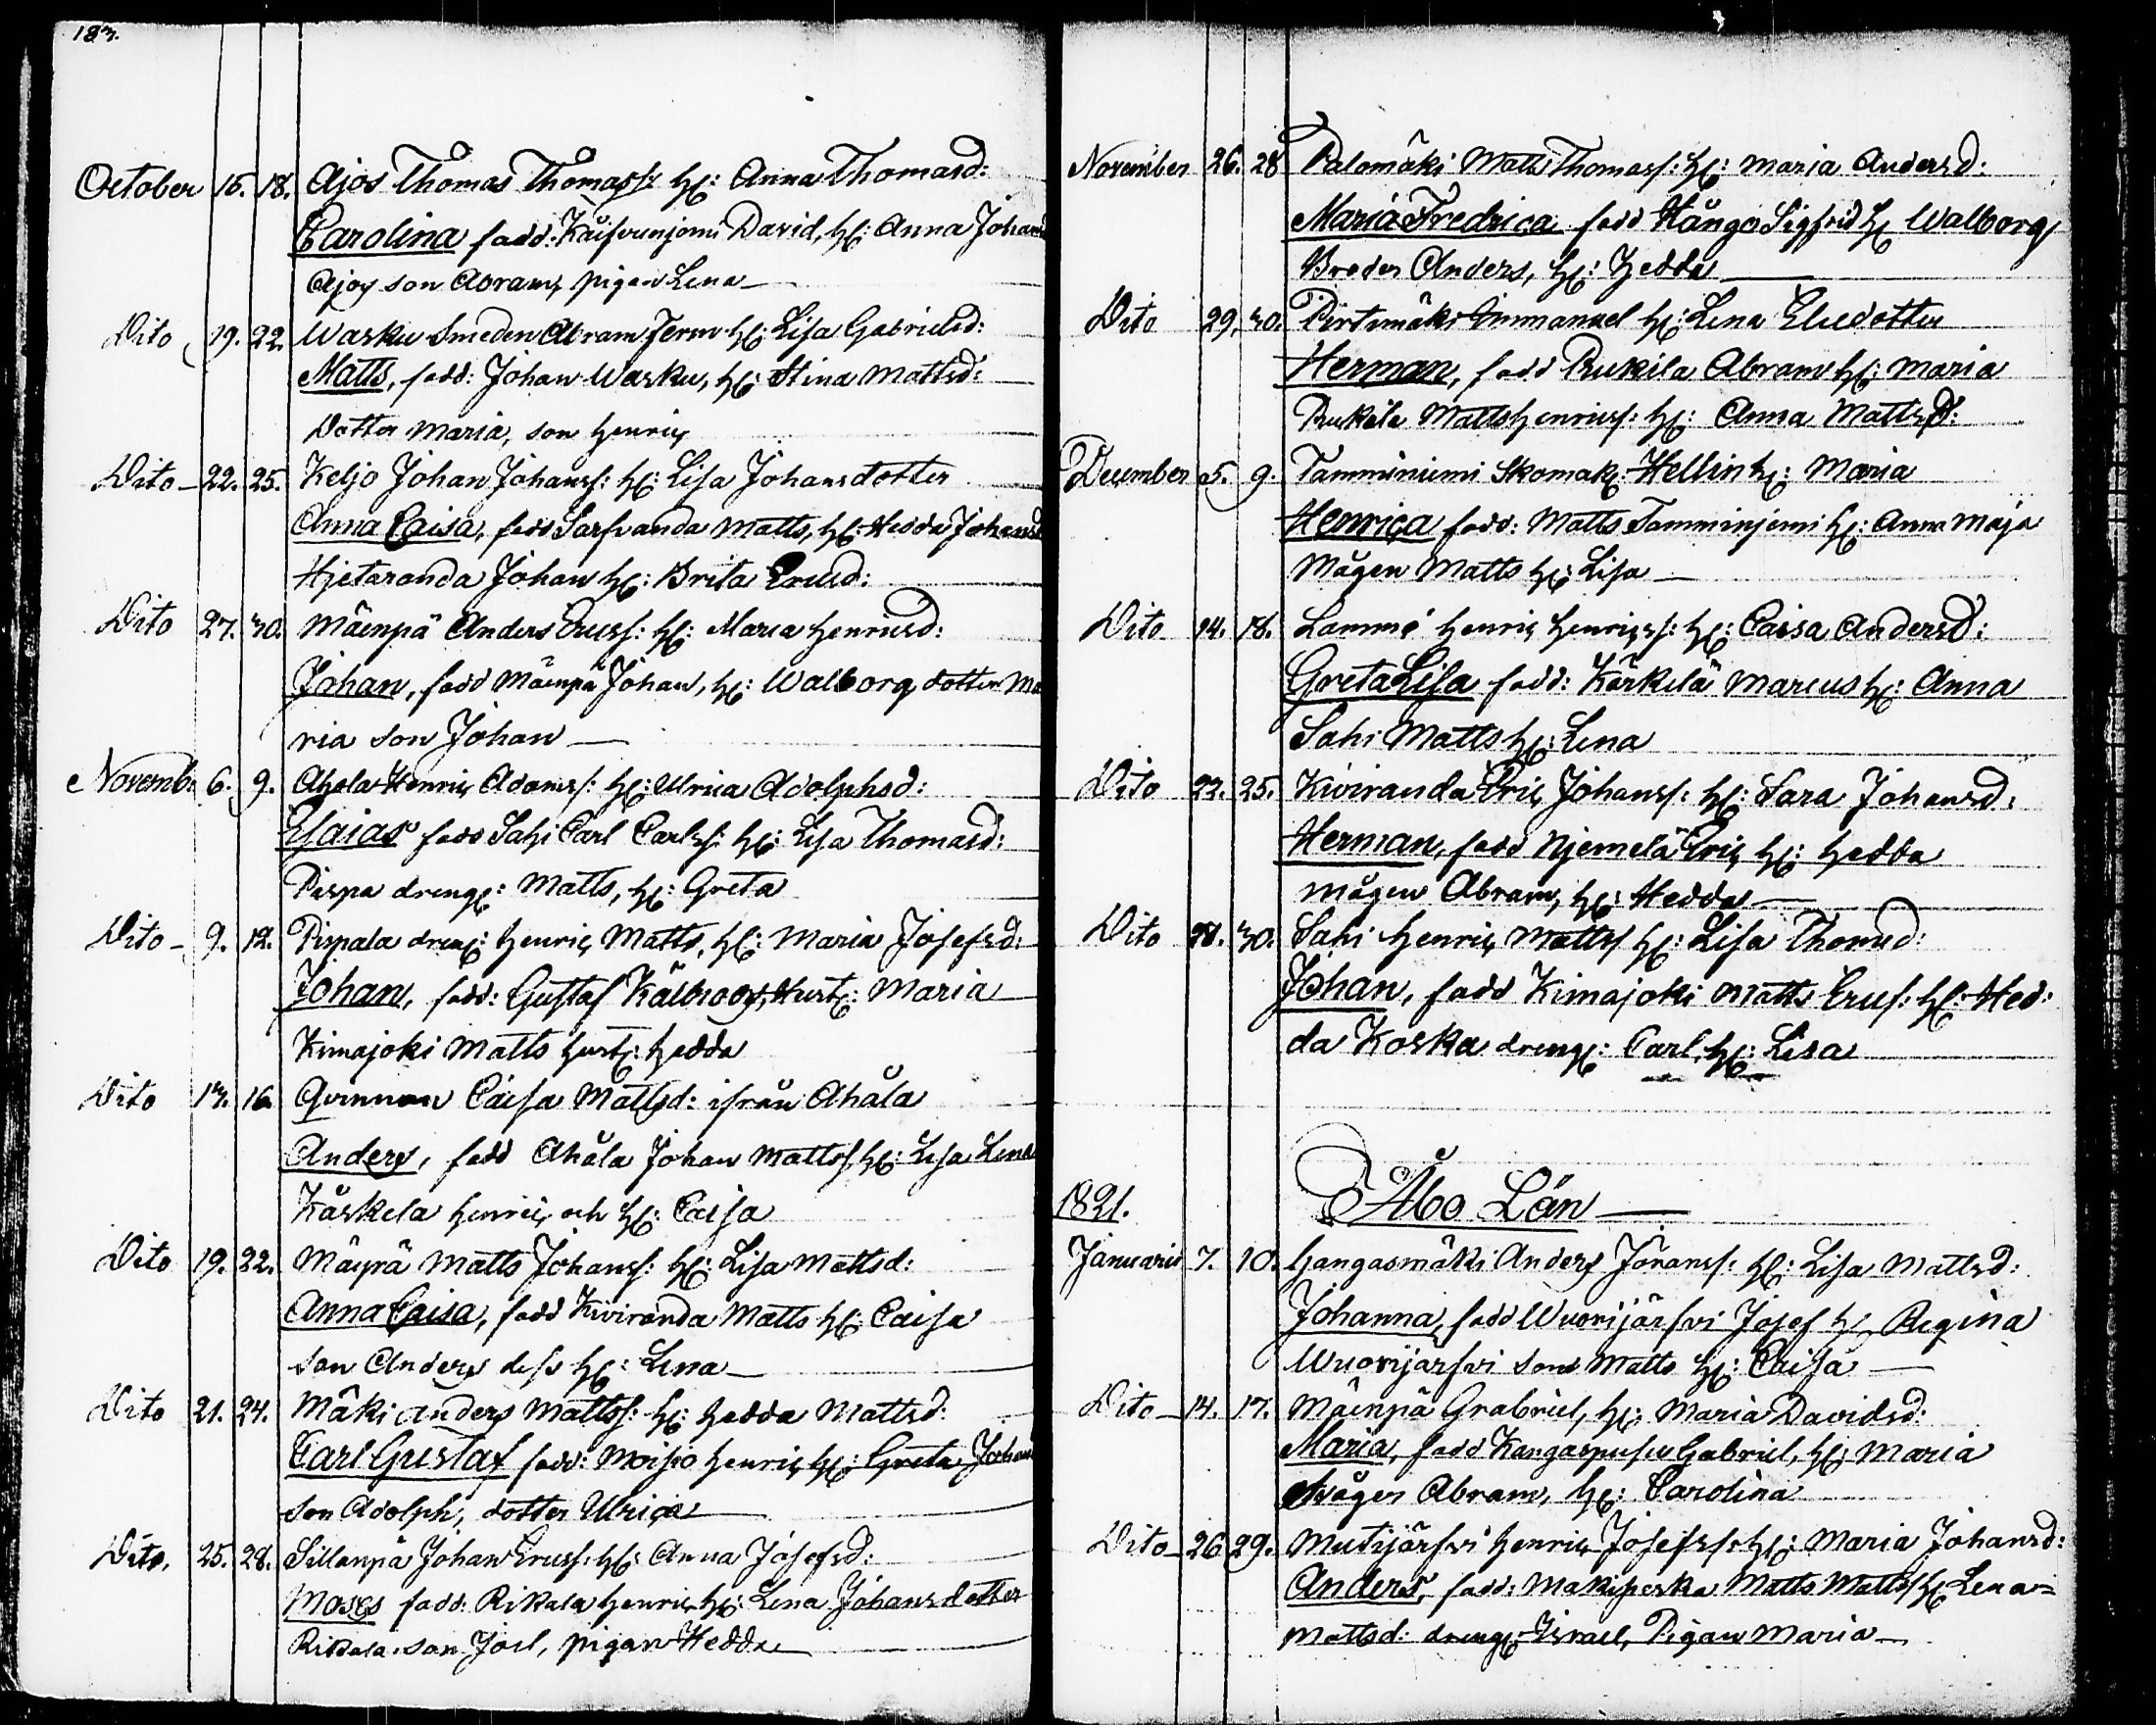 183.
October 15. 18. Ajos Thomas Thomass: H: Anna Thomasd:
Carolina fadd: David, H: Anna Johansd
Ajos son Abram, pigan Lena
Dito 19. 22. Wasku Smeden Abram Ferm H: Lisa Gabrielsd:
Matts, fadd: Johan Wasku, H: Stina Mattsd:
Dotter Maria, son Henric
Dito 22. 25. Keljo Johan Johanss: H: Lisa Johansdotter
Anna Caisa, fadd Sarfvanda Matts, H: Hedda Johansd
Hjetaranda Johan H: Brita Ericsd:
Dito 27. 30. Mäenpä Anders Ericss: H: Maria Henricsd:
Johan, fadd Mäenpä Johan, H: Walborg, dotter Ma
ria son Johan
Novemb: 6. 9. Ahola Henric Adamss: H: Ulrica Adolphsd:
Esaias fadd Sahi Carl Carlss: H: Lisa Thomasd:
Pispa dreng: Matts, H: Greta
Dito 9. 12. Pispala dreng: Henric Matts, H: Maria Josefsd:
Johan, fadd: Gustaf Hust: Maria
Kimajoki Matts Hust: Hedda
Dito 13. 16. Qvinnan Caisa Mattsd: ifrån Ahåla
Anders, fadd Ahåla Johan Mattss H: Lisa Lena
Kåskela Henric och H: Caisa
Dito 19. 22. Mäenpä Matts Johanss: H: Lisa Mattsd:
Anna Caisa, fadd Kiviranda Matts H: Caisa
son Anders dess H: Lena
Dito 21. 24. Mäki Anders Mattss: H: Hedda Mattsd:
Carl Gustaf fadd: Moisio Henric H: Greta Johan
son Adolph, dotter Ulrica
Dito, 25. 28. Sillanpä Johan Ericss: H: Anna Josefsd:
Moses fadd: Rikala Henric H: Lena Johansdotter
Rikala son Joel, pigan Hedda
November 26. 28 Palomäki Matts Thomass: H: Maria Andersd:
Maria Fredrica fadd Hångo Sigfrid H: Walborg
Broder Anders, H: Hedda
Dito 29. 30. Pirtimäki Immanuel H: Lena Eliedotter
Herman, fadd Rukila Abram H: Maria
Rukila Matts Henricss: H: Anna Mattsd:
December 5. 9. Tamminiemi Skomak: Hellin H: Maria
Henrica fadd: Matts Tamminjemi H: Anna Maja
Mågen Matts H: Lisa
Dito 14. 18. Lammi Henric Henricss: H: Caisa Andersd:
Greta Lisa fadd: Kärkilä Marcus H: Anna
Sahi Matts H: Lena
Dito 22. 25. Kiviranda Eric Johanss: H: Sara Johansd:
Herman, fadd Njemelä Eric H: Hedda
mågen Abram, H: Hedda
Dito 28. 30. Sahi Henric Mattss H: Lisa Thomsd:
Johan, fadd Kimajoki Matts Ericss: H: Hed:
da Koska dreng: Carl, H: Lisa
Åbo Län
1821.
Januarii 7. 10. Hangasmäki Anders Jöranss: H: Lisa Mattsd:
Johanna, fadd Wuorijärfvi Josef H: Regina
Wuorijärfvi son Matts H: Caisa
Dito 14. 17. Mäenpä Grabriel, H: Maria Davidsd:
Maria, fadd Gabriel, H: Maria
Måger Abram, H: Carolina
Dito 26 29. Mutijärfvi Henric Josefss: H: Maria Johansd:
Anders, fadd: Makipeska Matts Mattss H: Lena
Mattsd: dreng: Israel, Pigan Maria